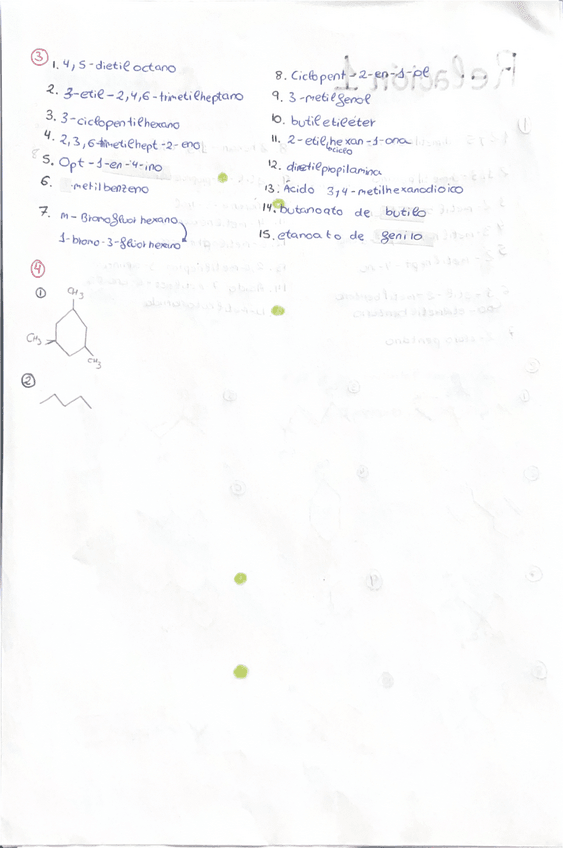 3
1. 4,5-dietiloctano
2. 3-etil-2,4,6-trimetilheptano
3. 3-ciclopentilhexano
4. 2,3,6-trimetilhept-2-eno
5. Opt-1-en-4-ino
6. metilbenzeno
7. m-Bromofluorhexano
1-bromo-3-fluorhexano
8. Ciclopent-2-en-1-ol
9. 3-metilfenol
10. butiletiléter
11. 2-etilhexan-1-ona
ciclo
12. dimetilpropilamina
13. Ácido 3,4-metilhexanodioico
14. butanoato de butilo
15. etanoato de fenilo
4
1
CH3
CH3
CH3
2